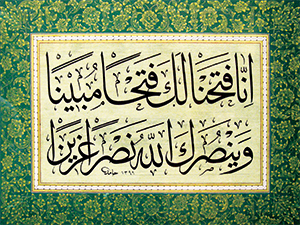 إِنَّا فَتَحْنَا لَكَ فَتْحًا مُبِينًا
وَيَنْصُرَكَ اللَّهُ نَصْرًا عَزِيزًا
حامد ١٣٩١